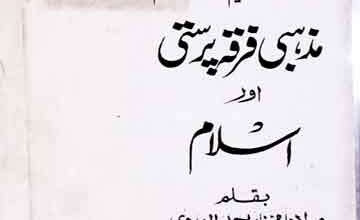 مذہبی فرقہ پرستی
اور
اسلام
بقلم